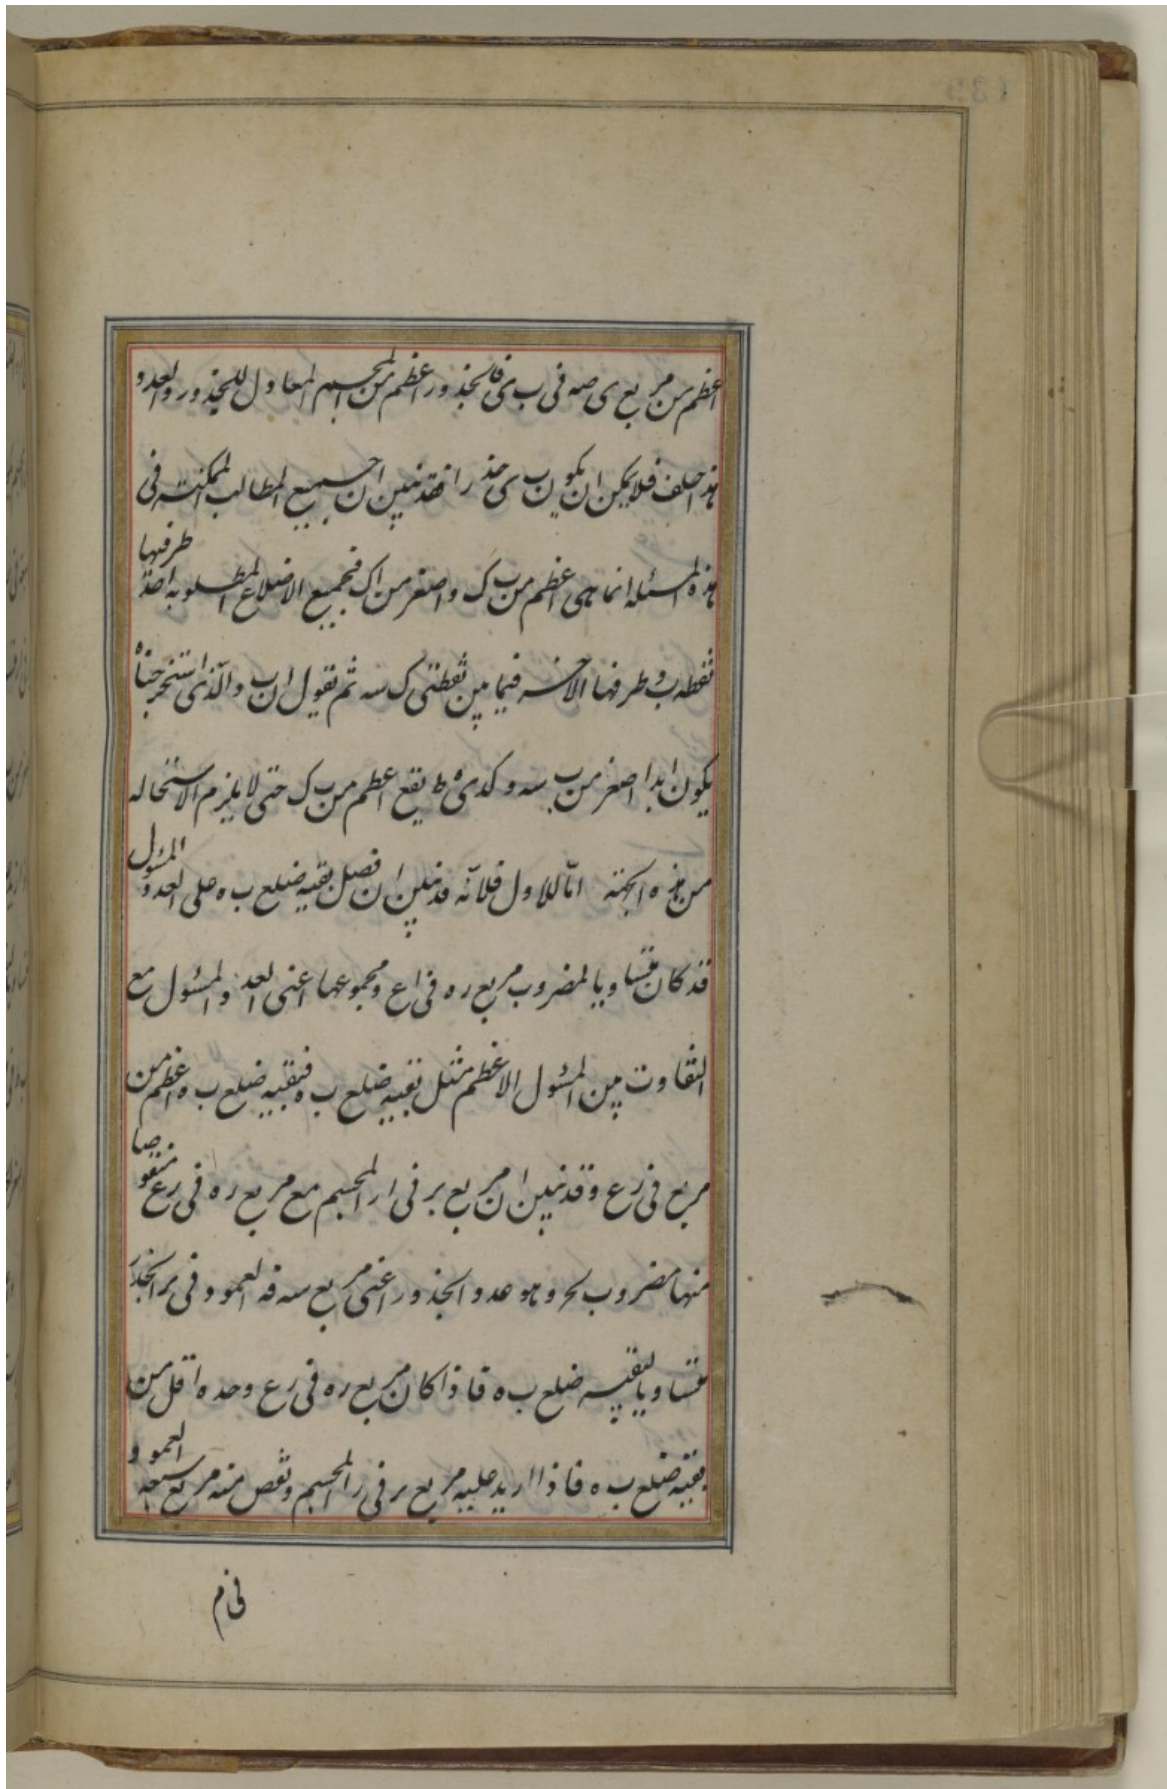 اعظم من مربع ى صه فى ب ى فالجذور اعظم من المجسم المعاول للجذور والعدد
هذا خلف فلا يمكن ان يكون ب ى جذرا فقد تبين ان جميع المطالب الممكنة فى
هذه المسئله انما هى اعظم من ب ك واصغر من اك فجميع الاضلاع المطلوبه احد طرفيها
نقطه ب وطرفها الاخر فيما بين نقطتى ك سه ثم نقول ان ب والذى استخرجناه
يكون ابدا اصغر من ب سه وكدى ه ط يقع اعظم من ب ك حتى لا يلزم الاستحاله
من هذه الجهة اما للاول فلانه قد تبين ان فضل بقيه ضلع ب ه على العدد المسؤل
قد كان متساويا لمضروب مربع ره فى اع ومجموعها اعنى العدد المسئول مع
التفاوت بين المسئول الاعظم مثل بقيه ضلع ب ه فبقيه ضلع ب ه اعظم من
مربع فى رع وقد تبين ان مربع بر فى ار المجسم مع مربع ره فى رع منقوصا
منها مضروب لحر وهو عدد الجذور اعنى مربع سه فه العمود فى بر الجذر
متساويا لبقيه ضلع ب ه فاذا كان مربع ره فى رع وحده اقل من
بقيه ضلع ب ه فاذا اريد عليه مربع بر فى را المجسم ونقص منه مربع العمود
فى م